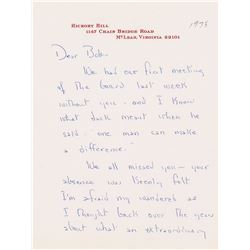 HICKORY HILL
1147 CHAIN BRIDGE ROAD
MCLEAN, VIRGINIA 22101
1975
Dear Bob -
We had our first meeting
of The Board last week
without you - and I know
what Jack meant when
he said - "one man can make
a difference."
We all missed you - your
absence was keenly felt
I'm afraid my wandered as
I thought back over the years
about what an extraordinary